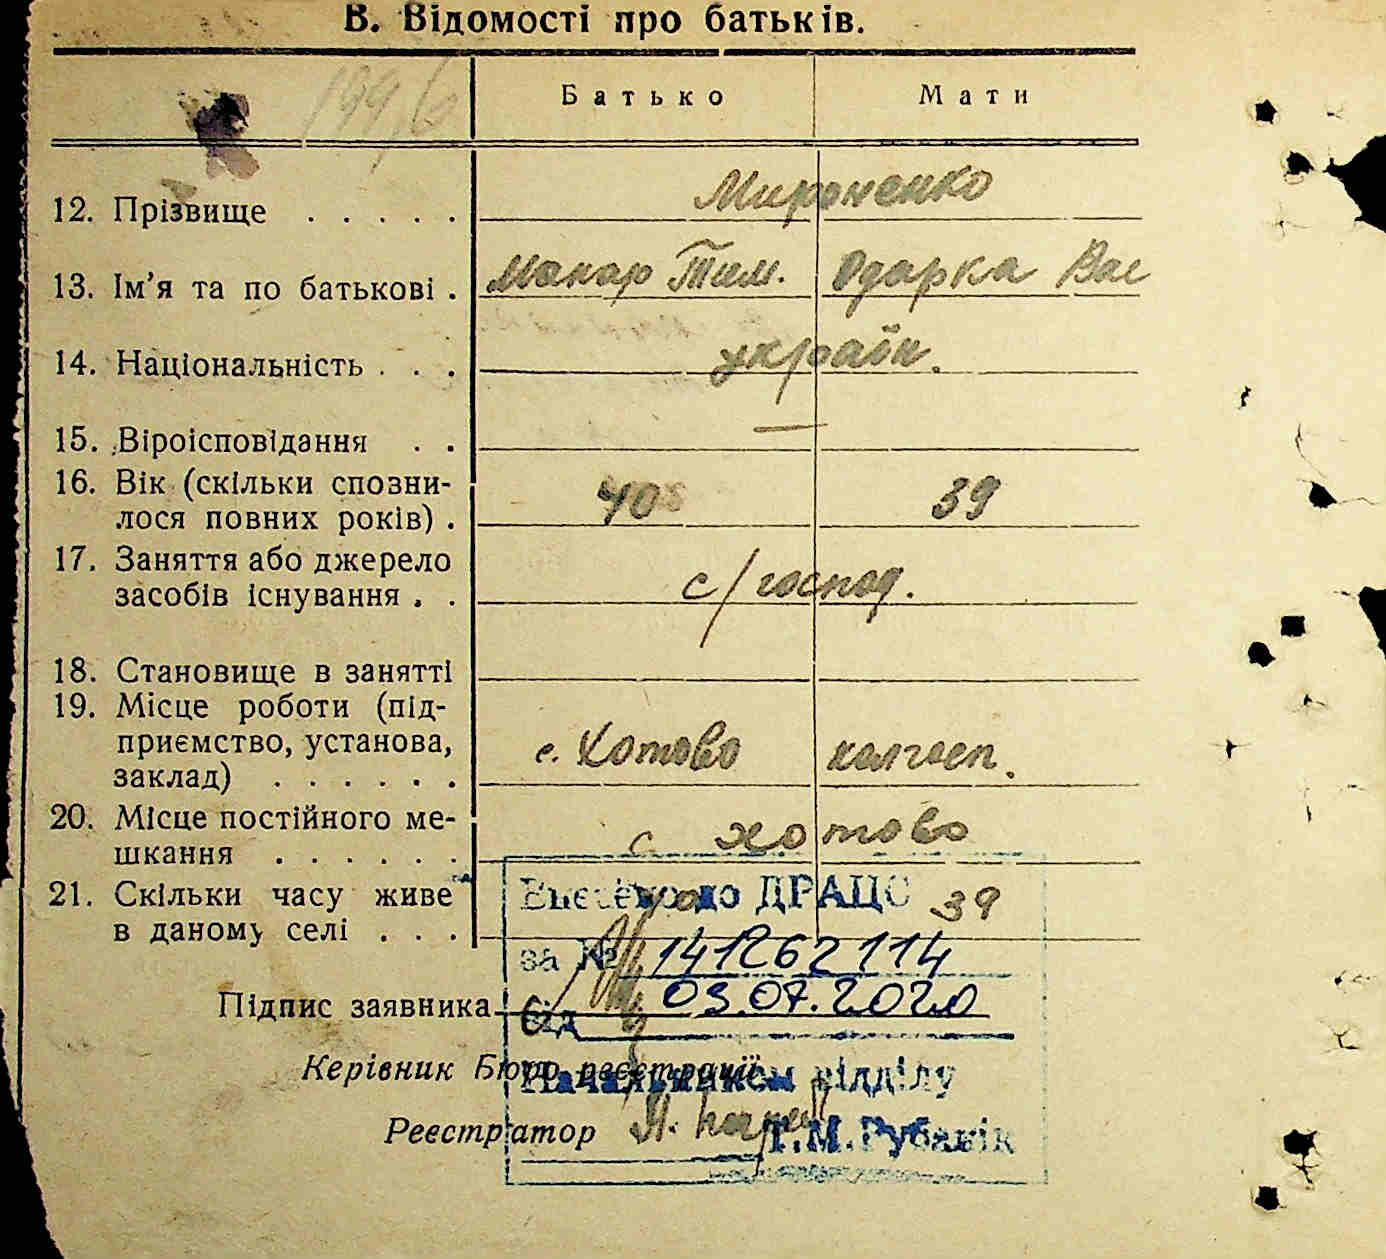 В. Відомості про батьків.
Батько Мати
12. Прізвище . . . . . Мироненко
13. Ім'я та по батькові . Макар Тим. Одарка Вас
14. Національність . . . україн.
15. Віроісповідання . . —
16. Вік (скільки сповни-
лося повних років) . 40 39
17. Заняття або джерело
засобів існування . . с/господ.
18. Становище в занятті
19. Місце роботи (під-
приємство, установа,
заклад) . . . . . . с. Хотово колгосп.
20. Місце постійного ме-
шкання . . . . . . с. Хотово
21. Скільки часу живе
в даному селі . . . 40 39
Внесено до ДРАЦС
за № 141262114
Підпис заявника
від 03.07.2020
Керівник Бюро реєстрації
Начальником відділу
Реєстратор
Т.М.Рубанік